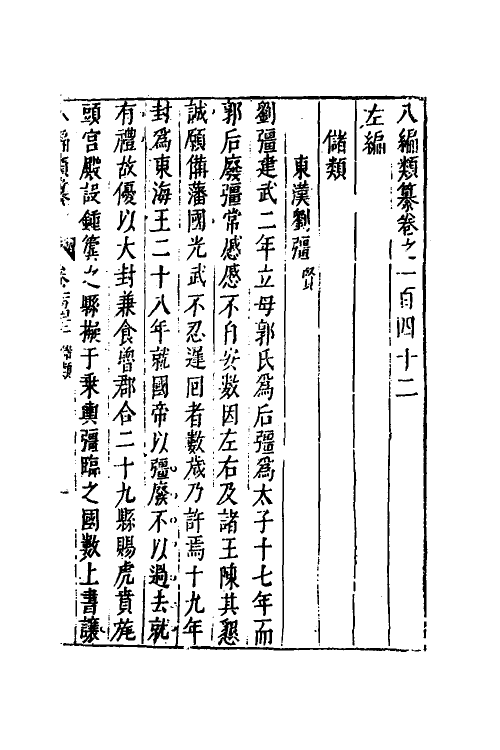 八編類纂卷之一百四十二
左編
儲類
東漢劉彊 賢
劉彊建武二年立母郭氏為后彊為太子十七年而
郭后廢彊常慼慼不自安數因左右及諸王陳其懇
誠願備藩國光武不忍遲回者數歲乃許焉十九年
封爲東海王二十八年就國帝以彊廢不以過去就
有禮故優以大封兼食魯郡合二十九縣賜虎賁旄
頭宮殿設鍾簴之縣擬于乘輿彊臨之國數上書讓
八編類纂 儲類 一